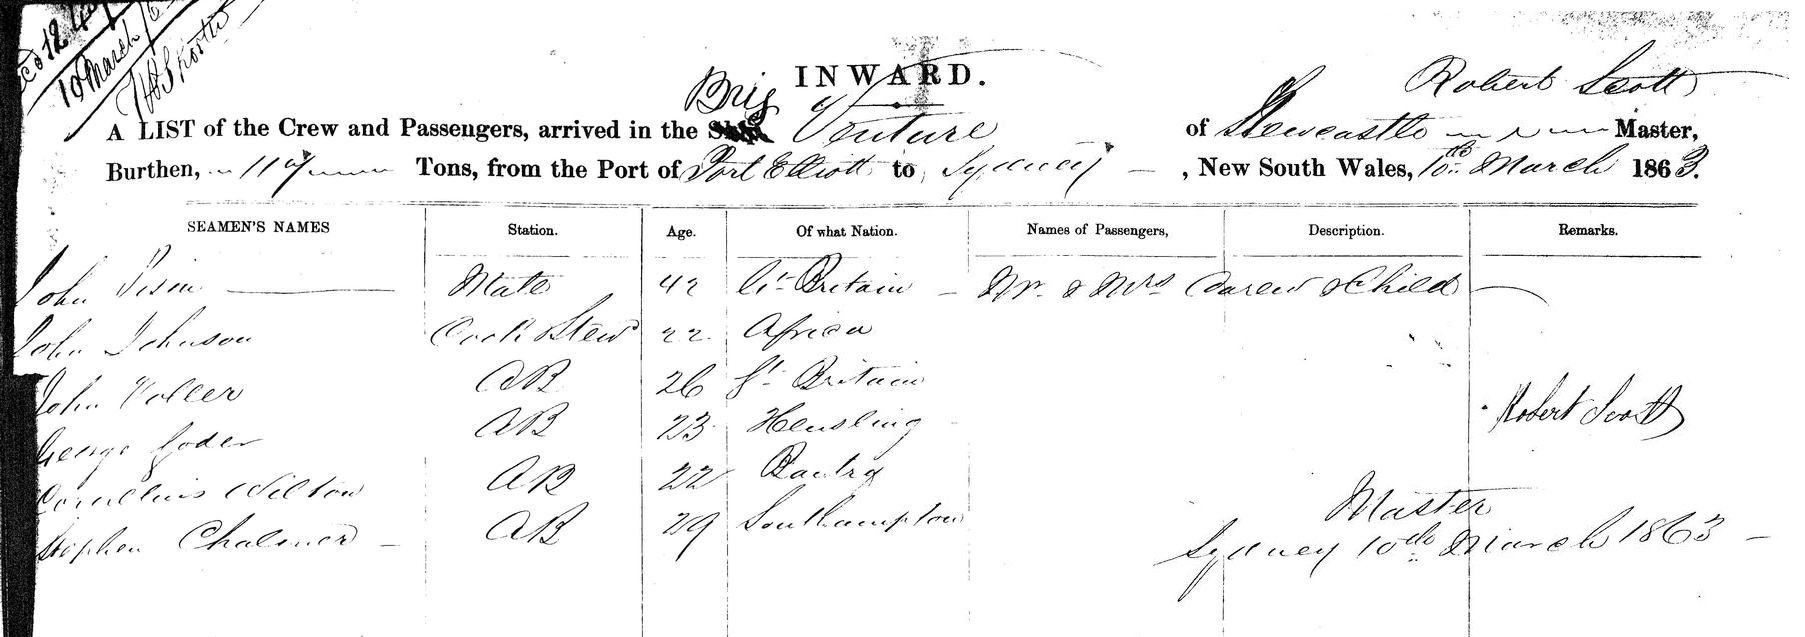 10 March
INWARD.
Robert Scott
A LIST of the Crew and Passengers, arrived in the Brig Venture of Newcastle Master,
Burthen, 117 Tons, from the Port of Port Elliott to Sydney, New South Wales, 10th March 1863.
SEAMEN'S NAMES Station. Age. Of what Nation. Names of Passengers, Description. Remarks.
John Mate 42 Gt Britain Mr & Mrs Carew & Child
John Johnson Cook & Stew 22 Africa
John AB 26 Gt Britain
Robert Scott
George AB 23
Cornelius Wilton AB 22 Bantry
Master
Stephen Chalmer AB 29 Southampton
Sydney 10th March 1863